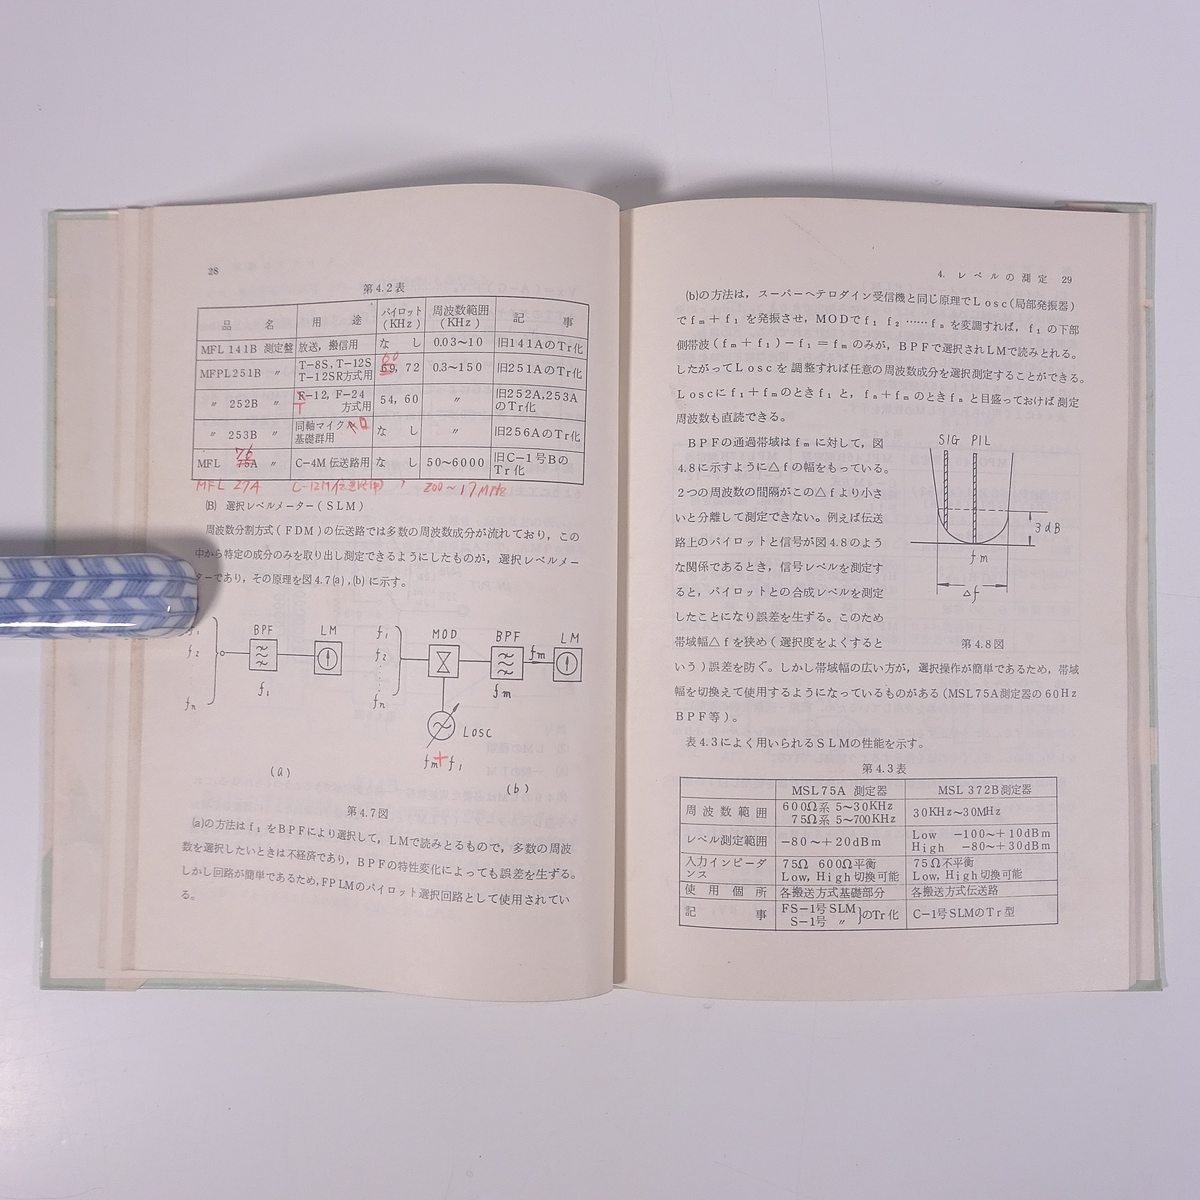 28
第4.2表
品 名 用 途 パイロット(KHz) 周波数範囲(KHz) 記 事
MFL 141B 測定盤 放送,搬信用 な し 0.03～10 旧141AのTr化
MFPL251B 〃 T-8S,T-12S T-12SR方式用 69, 60, 72 0.3～150 旧251AのTr化
〃 252B 〃 R-12, F-24 方式用 T 54, 60 〃 旧252A,253AのTr化
〃 253B 〃 同軸マイクロ基礎群用 な し 〃 旧256AのTr化
MFL 75A 76 〃 C-4M 伝送路用 な し 50～6000 旧C-1号BのTr化
MFL 27A C-12M伝送路用 〃 200～17MHz
(B) 選択レベルメーター(SLM)
周波数分割方式(FDM)の伝送路では多数の周波数成分が流れており,この
中から特定の成分のみを取り出し測定できるようにしたものが,選択レベルメー
ターであり,その原理を図4.7(a),(b)に示す。
f₁ f₂ fn BPF f₁ LM
(a)
f₁ f₂ fn MOD BPF fm fm LM
LOSC
fm+f₁
(b)
第4.7図
(a)の方法はf₁をBPFにより選択して,LMで読みとるもので,多数の周波
数を選択したいときは不経済であり,BPFの特性変化によっても誤差を生ずる。
しかし回路が簡単であるため,FPLMのパイロット選択回路として使用されてい
る。
4. レベルの測定 29
(b)の方法は,スーパーヘテロダイン受信機と同じ原理でLosc(局部発振器)
でfm+f₁を発振させ,MODでf₁ f₂……fnを変調すれば,f₁の下部
側帯波(fm+f₁)-f₁=fmのみが,BPFで選択されLMで読みとれる。
したがってLoscを調整すれば任意の周波数成分を選択測定することができる。
Loscにf₁+fmのときf₁と,fn+fmのときfnと目盛っておけば測定
周波数も直読できる。
BPFの通過帯域はfmに対して,図
4.8に示すように△fの幅をもっている。
2つの周波数の間隔がこの△fより小さ
いと分離して測定できない。例えば伝送
路上のパイロットと信号が図4.8のよう
な関係であるとき,信号レベルを測定す
ると,パイロットとの合成レベルを測定
したことになり誤差を生ずる。このため
帯域幅△fを狭め(選択度をよくすると
いう)誤差を防ぐ。しかし帯域幅の広い方が,選択操作が簡単であるため,帯域
幅を切換えて使用するようになっているものがある(MSL75A測定器の60Hz
BPF等)。
SIG PIL
3dB
fm
△f
第4.8図
表4.3によく用いられるSLMの性能を示す。
第4.3表
MSL75A 測定器 MSL 372B測定器
周波数範囲 600Ω系 5～30KHz 75Ω系 5～700KHz 30KHz～30MHz
レベル測定範囲 -80～+20dBm Low -100～+10dBm High -80～+30dBm
入力インピーダンス 75Ω 600Ω平衡 Low, High切換可能 75Ω不平衡 Low, High切換可能
使用個所 各搬送方式基礎部分 各搬送方式伝送路
記 事 FS-1号SLM S-1号 〃 }のTr化 C-1号SLMのTr型